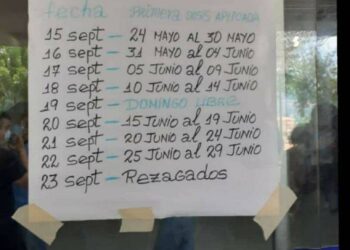 fecha primera dosis aplicada
15 sept – 24 MAYO AL 30 MAYO
16 sept – 31 MAYO al 04 JUNIO
17 sept – 05 JUNIO al 09 JUNIO
18 sept – 10 JUNIO al 14 JUNIO
19 sept – DOMINGO LIBRE
20 sept – 15 JUNIO al 19 JUNIO
21 sept – 20 JUNIO al 24 JUNIO
22 sept – 25 JUNIO al 29 JUNIO
23 sept – REZAGADOS